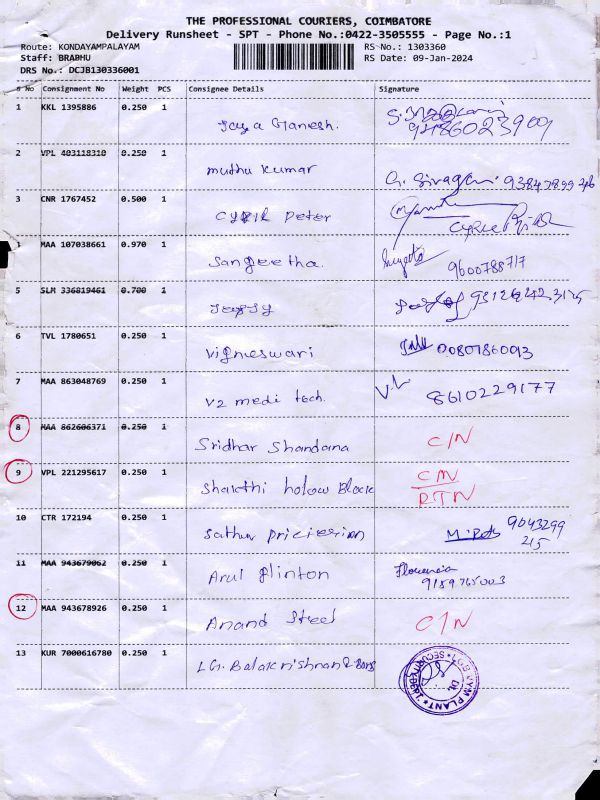 THE PROFESSIONAL COURIERS, COIMBATORE
Delivery Runsheet - SPT - Phone No.:0422-3505555 - Page No.:1
Route: KONDAYAMPALAYAM RS No.: 1303360
Staff: BRABHU RS Date: 09-Jan-2024
DRS No.: DCJB130336001
S No Consignment No Weight PCS Consignee Details Signature
1 KKL 1395886 0.250 1
Jaya Ganesh.
2 VPL 403118310 0.250 1
muthu kumar
G. Sivagami
3 CNR 1767452 0.500 1
Cyrik peter
4 MAA 107038661 0.970 1
Sangeetha. 9600788717
5 SLM 336819461 0.700 1
6 TVL 1780651 0.250 1
Vigneswari
7 MAA 863048769 0.250 1
V2 medi tech. 8610229177
8 MAA 862606371 0.250 1
Sridhar Shandana C/N
9 VPL 221295617 0.250 1 C/N
Shakthi holow Block RTN
10 CTR 172194 0.250 1 9043299
215
11 MAA 943679062 0.250 1
Arul flinton 9159765003
12 MAA 943678926 0.250 1
Anand Steel C/N
13 KUR 7000616780 0.250 1
L.G. Balakrishnan & Bors